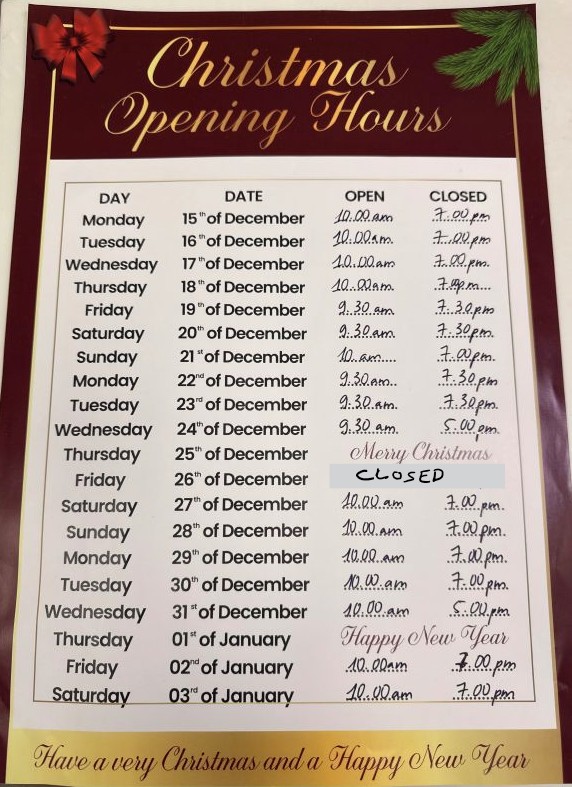 Christmas
Opening Hours
DAY DATE OPEN CLOSED
Monday 15th of December 10.00 am 7.00 pm
Tuesday 16th of December 10.00am. 7.00 pm
Wednesday 17th of December 10.00am 7.00 pm.
Thursday 18th of December 10.00am. 7.00pm...
Friday 19th of December 9.30 am. 7.30 pm
Saturday 20th of December 9.30 am. 7.30pm.
Sunday 21st of December 10. am.... 7.00pm.
Monday 22nd of December 9.30 am.. 7.30 pm
Tuesday 23rd of December 9.30 am. 7.30pm.
Wednesday 24th of December 9.30 am. 5.00 pm.
Thursday 25th of December Merry Christmas
Friday 26th of December CLOSED
Saturday 27th of December 10.00 am 7.00 pm.
Sunday 28th of December 10.00 am 7.00 pm.
Monday 29th of December 10.00 am 7.00 pm.
Tuesday 30th of December 10.00 am 7.00 pm.
Wednesday 31st of December 10.00 am 5.00 pm
Thursday 01st of January Happy New Year
Friday 02nd of January 10.00am 7.00 pm
Saturday 03rd of January 10.00 am 7.00 pm
Have a very Christmas and a Happy New Year